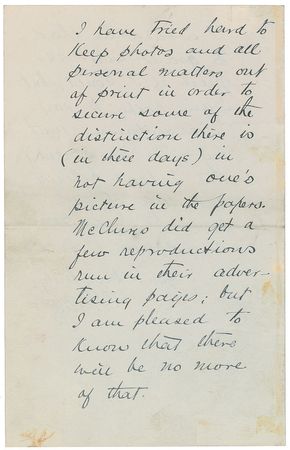 I have tried hard to
keep photos and all
personal matters out
of print in order to
secure some of the
distinction there is
(in these days) in
not having one's
picture in the papers.
McClures did get a
few reproductions
run in their adver-
tising pages; but
I am pleased to
know that there
will be no more
of that.